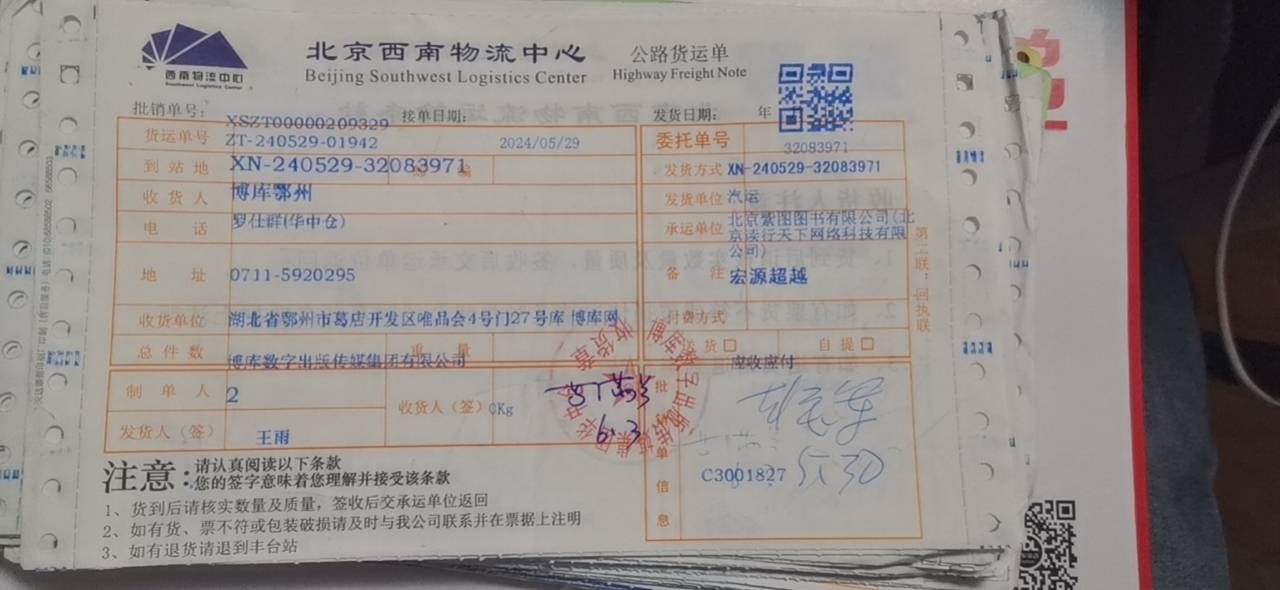 西南物流中心
Southwest Logistics Center
北京西南物流中心
Beijing Southwest Logistics Center
公路货运单
Highway Freight Note
批销单号: XSZT00000209329 接单日期: 发货日期: 年
货运单号 ZT-240529-01942 2024/05/29 委托单号 32083971
到站地 XN-240529-32083971 发货方式 XN-240529-32083971
收货人 博库鄂州 发货单位 汽运
电话 罗仕群(华中仓) 承运单位 北京紫图图书有限公司(北
京读行天下网络科技有限
公司)
地址 0711-5920295 备注 宏源超越
收货单位 湖北省鄂州市葛店开发区唯品会4号门27号库 博库网 付费方式
送货 自提
总件数 博库数字出版传媒集团有限公司 重量 应收应付
制单人 2 收货人(签) 0Kg
6.3
发货人(签) 王雨
批
单
信
息
C3001827 5.30
第二联:回执联
注意:
请认真阅读以下条款
您的签字意味着您理解并接受该条款
1、货到后请核实数量及质量，签收后交承运单位返回
2、如有货、票不符或包装破损请及时与我公司联系并在票据上注明
3、如有退货请退到丰台站